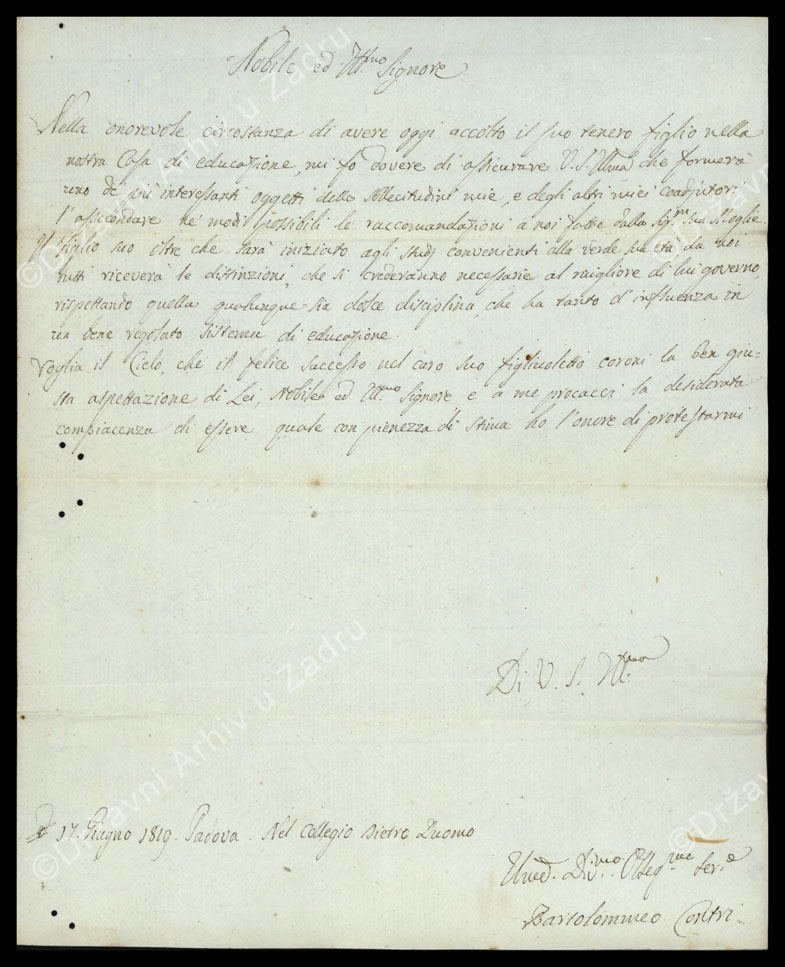 Nobile ed Ill.mo Signore
Nella onorevole circostanza di avere oggi accolto il suo tenero figlio nella
nostra Casa di educazione, mi fo dovere di assicurare V. S. Illma che formerà
uno de' più interessanti oggetti delle sollecitudini mie, e degli altri miei coadjutori
l'assecondare ne' modi possibili le raccomandazioni a noi fatte dalla Sig.ra sua Moglie
Il figlio suo oltre che sarà iniziato agli studj convenienti alla verde sua età da noi
tutti riceverà le distinzioni, che si crederanno necessarie al migliore di lui governo,
rispettando quella qualunque sia dolce disciplina, che ha tanto d'influenza in
un bene regolato sistema di educazione.
Voglia il Cielo, che il felice successo nel caro suo figliuoletto coroni la ben giu-
sta aspettazione di Lei, Nobile ed Ill.mo Signore e a me procacci la desiderata
compiacenza di essere quale con pienezza di stima ho l'onore di protestarmi
Di V. S. Ill.ma
17. Giugno 1819. Padova. Nel Collegio dietro Duomo
Umil. Div.mo Obbeq.mo Ser.e
Bartolommeo Contri
©Državni Arhiv u Zadru
©Državni Arhiv u Zadru
©Državni
©Državni